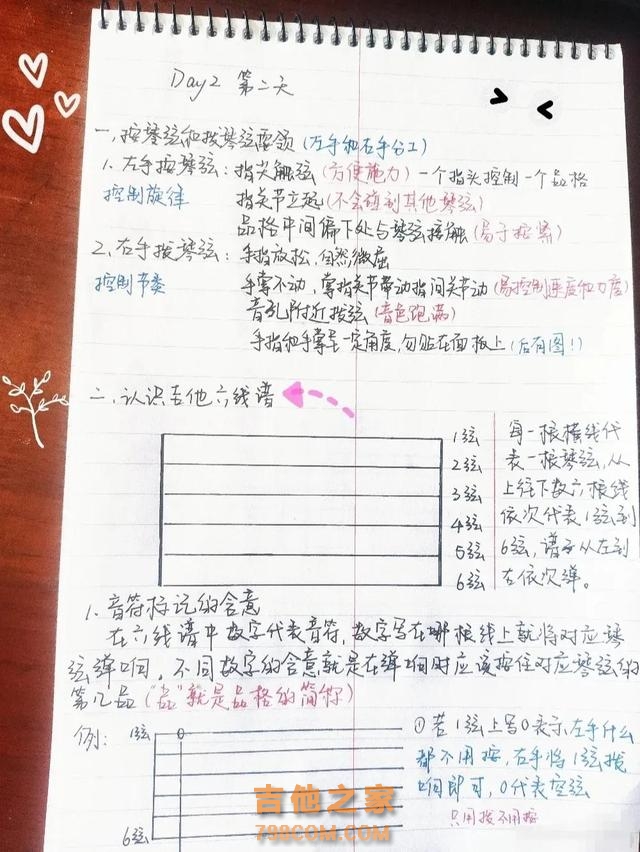 Day2 第二天
一、按琴弦和拨琴弦要领(左手和右手分工)
1.左手按琴弦:指尖触弦(方便施力)一个指头控制一个品格
控制旋律 指关节立起(不会碰到其他琴弦)
品格中间偏下处与琴弦接触(易于按紧)
2.右手拨琴弦:手指放松,自然微屈
控制节奏 手掌不动,掌指关节带动指间关节动(易控制速度和力度)
音孔附近拨弦(音色饱满)
手指和手掌呈一定角度,勿贴在面板上(后有图!)
二、认识吉他六线谱
1弦
2弦
3弦
4弦
5弦
6弦
每一根横线代
表一根琴弦,从
上往下数六根线
依次代表1弦到
6弦,谱子从左到
右依次弹。
1.音符标记的含意
在六线谱中数字代表音符,数字写在哪根线上就将对应琴
弦弹响,不同数字的含意就是在弹响时应该按住对应琴弦的
第几品("品"就是品格的简称)
例: 1弦 0
6弦
①若1弦上写0表示,左手什么
都不用按,右手将1弦拨
响即可,0代表空弦
只用拨不用按
吉他之家
798COM.COM